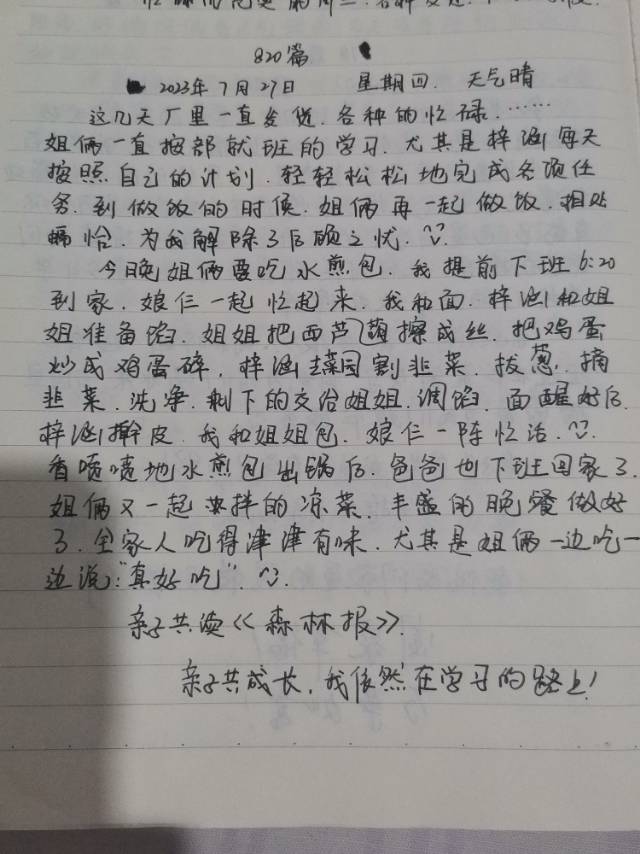 820篇
2023年7月27日 星期四. 天气晴
这几天厂里一直发货. 各种的忙禄. ……
姐俩一直按部就班的学习. 尤其是梓涵每天
按照自己的计划. 轻轻松松地完成各项任
务. 到做饭的时候. 姐俩再一起做饭. 相处
怡. 为我解除了后顾之忧.
今晚姐俩要吃水煎包. 我提前下班6:20
到家. 娘仨一起忙起来. 我和面. 梓涵和姐
姐准备馅. 姐姐把西芦葫擦成丝. 把鸡蛋
炒成鸡蛋碎, 梓涵去菜园割韭菜. 拔葱. 摘
韭菜. 洗净. 剩下的交给姐姐. 调馅. 面醒好后.
梓涵擀皮. 我和姐姐包. 娘仨一阵忙活.
香喷喷地水煎包出锅后. 爸爸也下班回家了.
姐俩又一起拌的凉菜. 丰盛的晚餐做好
了. 全家人吃得津津有味. 尤其是姐俩一边吃一
边说:"真好吃".
亲子共读《森林报》.
亲子共成长, 我依然在学习的路上!